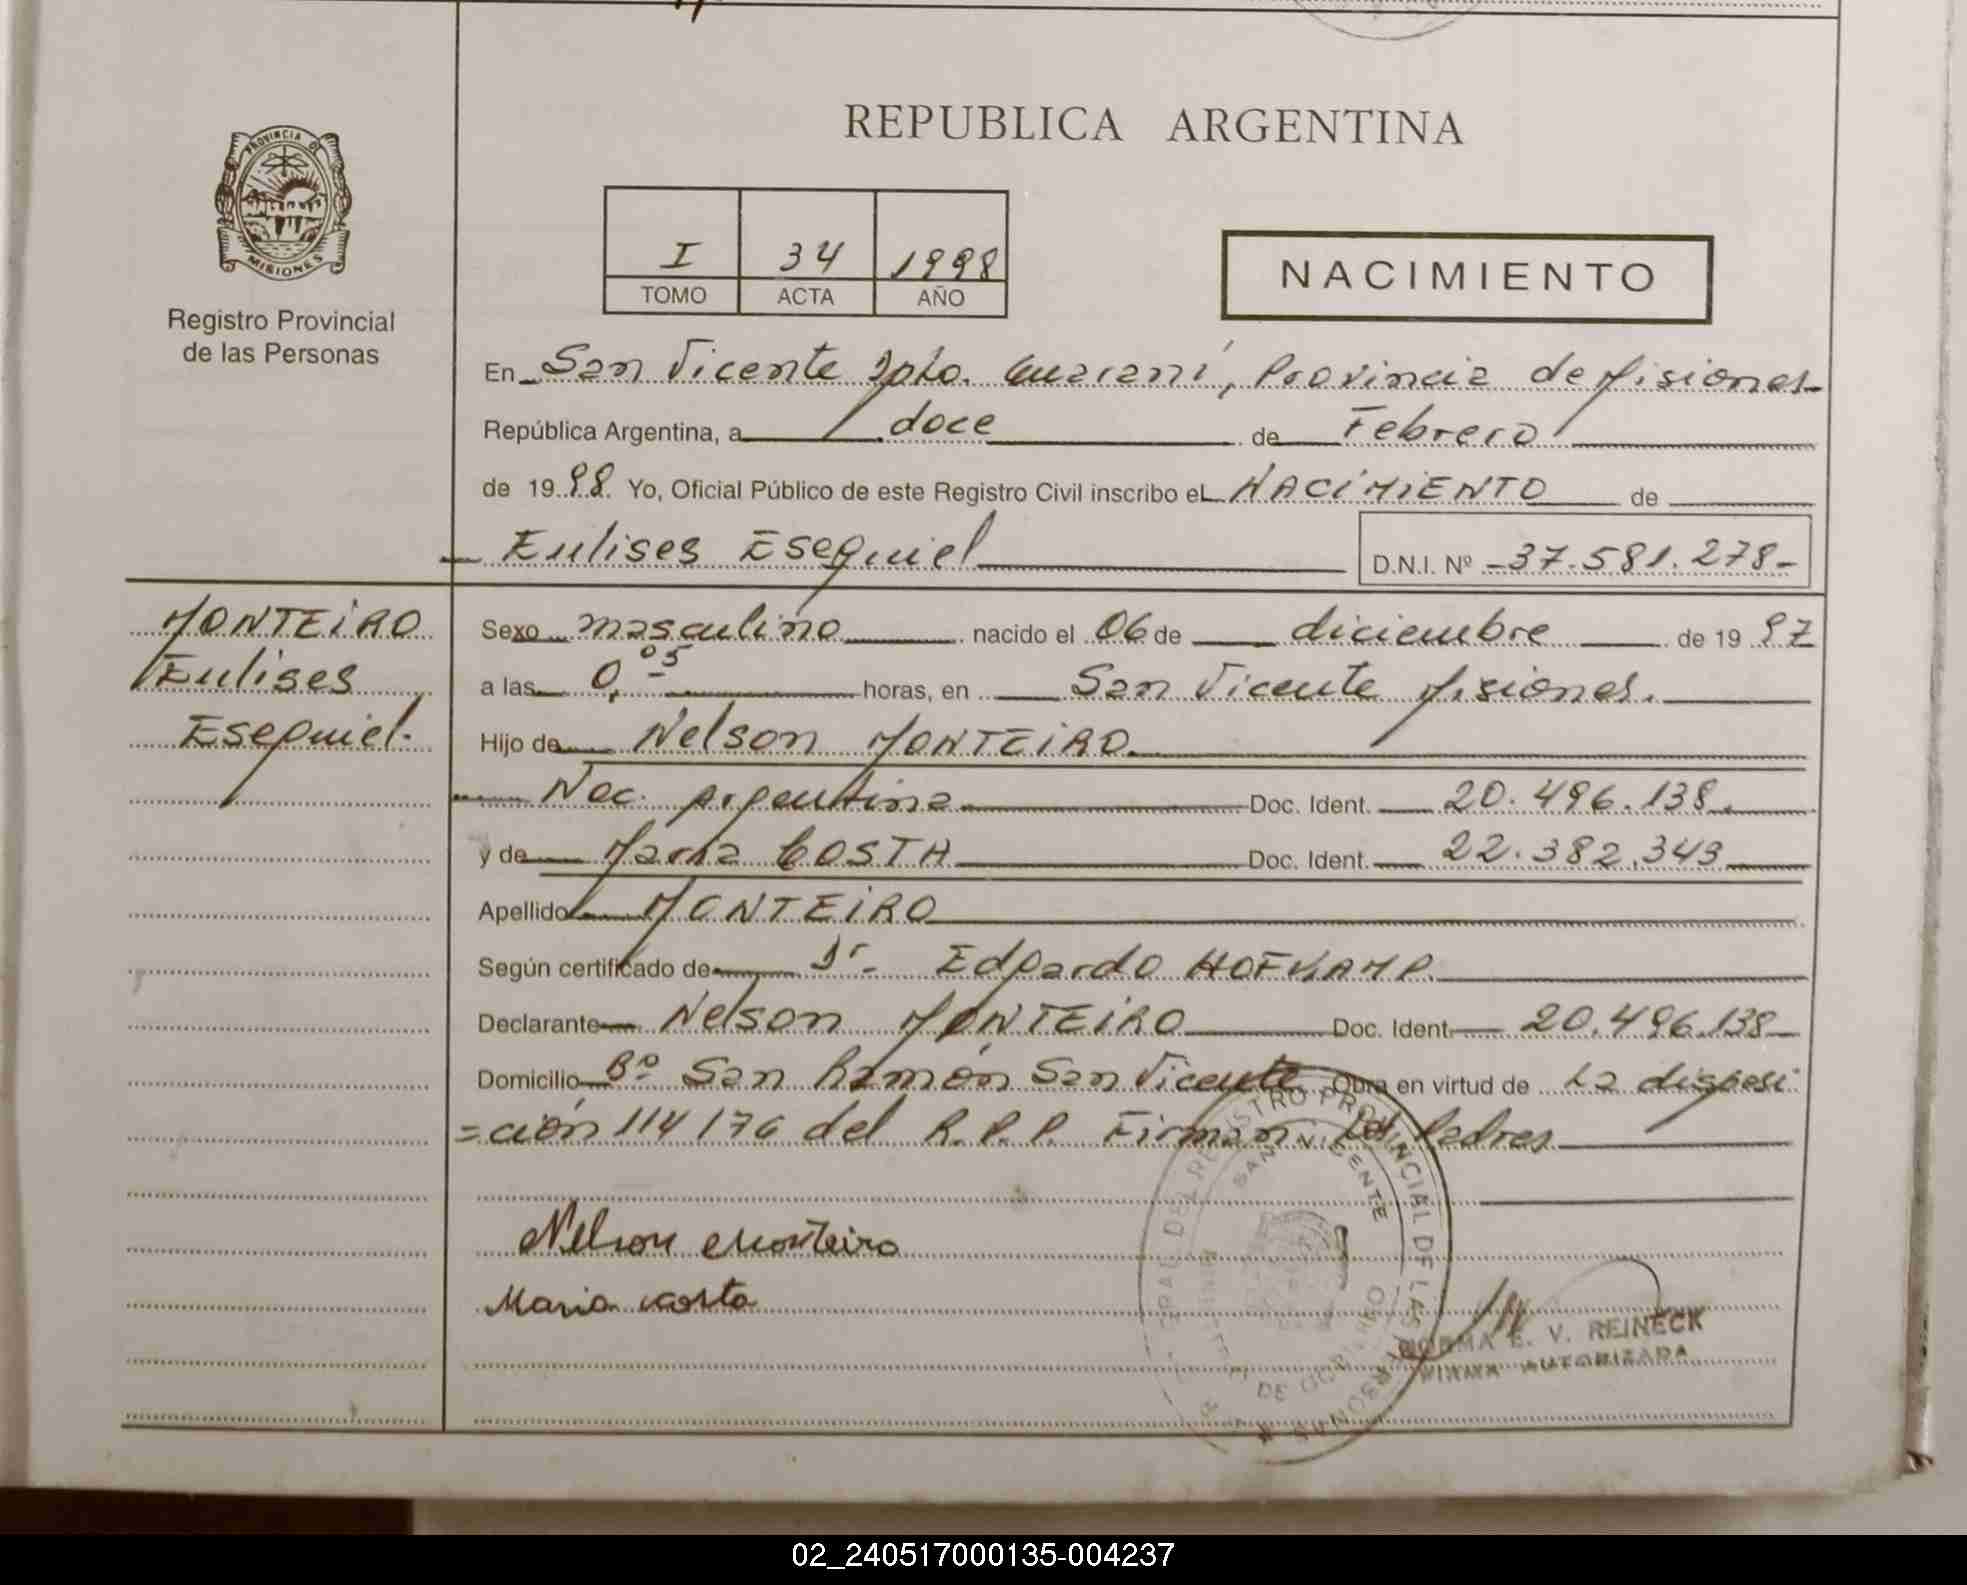 REPUBLICA ARGENTINA
PROVINCIA DE
MISIONES
Registro Provincial
de las Personas
I 34 1998
TOMO ACTA AÑO
NACIMIENTO
En San Vicente Dpto. Guaraní, Provincia de Misiones
República Argentina, a doce de Febrero
de 1998. Yo, Oficial Público de este Registro Civil inscribo el NACIMIENTO de
Eulises Esequiel D.N.I. Nº 37.581.278-
MONTEIRO
Eulises
Esequiel.
Sexo masculino nacido el 06 de diciembre de 1997
a las 0,05 horas, en San Vicente Misiones.
Hijo de Nelson MONTEIRO
Nac. Argentina Doc. Ident. 20.496.138.
y de María COSTA Doc. Ident. 22.382.343
Apellido MONTEIRO
Según certificado de Dr. Edgardo HOFKAMP.
Declarante Nelson MONTEIRO Doc. Ident. 20.496.138
Domicilio Bº San Ramón San Vicente Obra en virtud de La disposi
=ción 114/76 del R.P.P. Firman Los Padres
Nelson Monteiro
Maria Costa
REGISTRO PROVINCIAL DE LAS PERSONAS
SAN VICENTE
NORMA E. V. REINECK
FIRMA AUTORIZADA
02_240517000135-004237